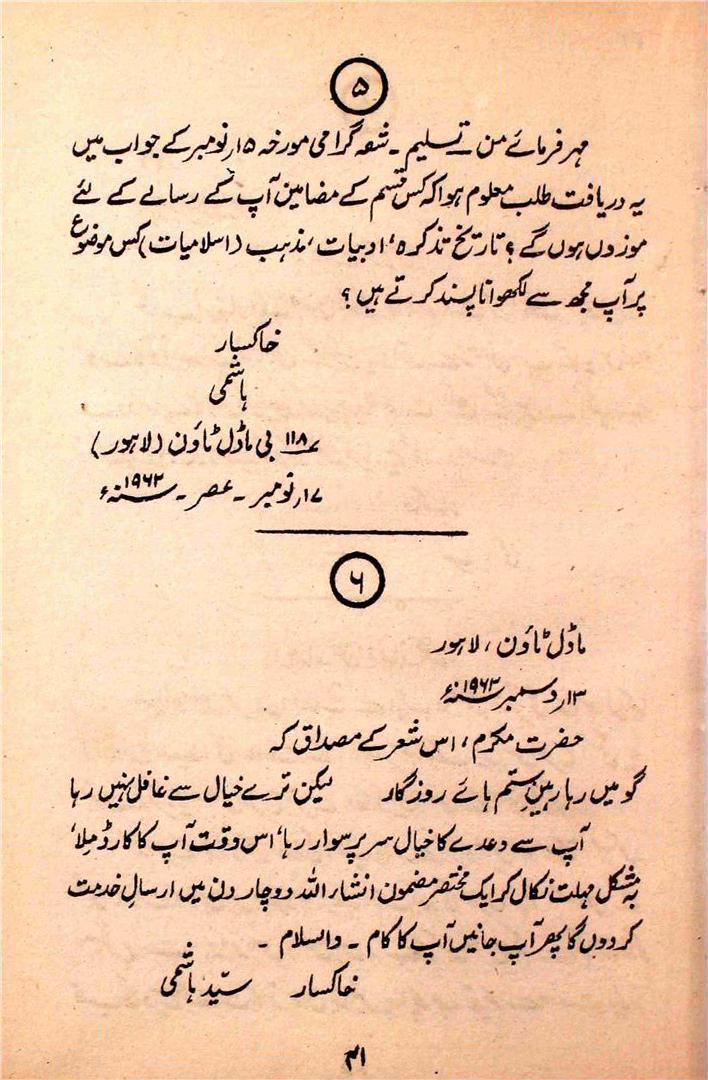 ۵
مہر فرمائے من ۔ تسلیم ۔ شقہ گرامی مورخہ ۱۵ر نومبر کے جواب میں
یہ دریافت طلب معلوم ہوا کہ کس قسم کے مضامین آپ کے رسالے کے لئے
موزوں ہوں گے ؟ تاریخ تذکرہ ، ادبیات ، مذہب (اسلامیات) کس موضوع
پر آپ مجھ سے لکھوانا پسند کرتے ہیں ؟
خاکسار
ہاشمی
۱۱۸ بی ماڈل ٹاؤن (لاہور)
۱۷ر نومبر ۔ عصر ۔ ۱۹۶۲ء
۶
ماڈل ٹاؤن ، لاہور
۱۳ر دسمبر ۱۹۶۲ء
حضرت مکرم ، اس شعر کے مصداق کہ
گو میں رہا رہینِ ستم ہائے روزگار لیکن ترے خیال سے غافل نہیں رہا
آپ سے وعدے کا خیال سر پر سوار رہا ، اس وقت آپ کا کارڈ ملا ،
بہ مشکل مہلت نکال کر ایک مختصر مضمون انشاء اللہ دو چار دن میں ارسالِ خدمت
کر دوں گا پھر آپ جانیں آپ کا کام ۔ والسلام ۔
خاکسار سیّد ہاشمی
۴۱